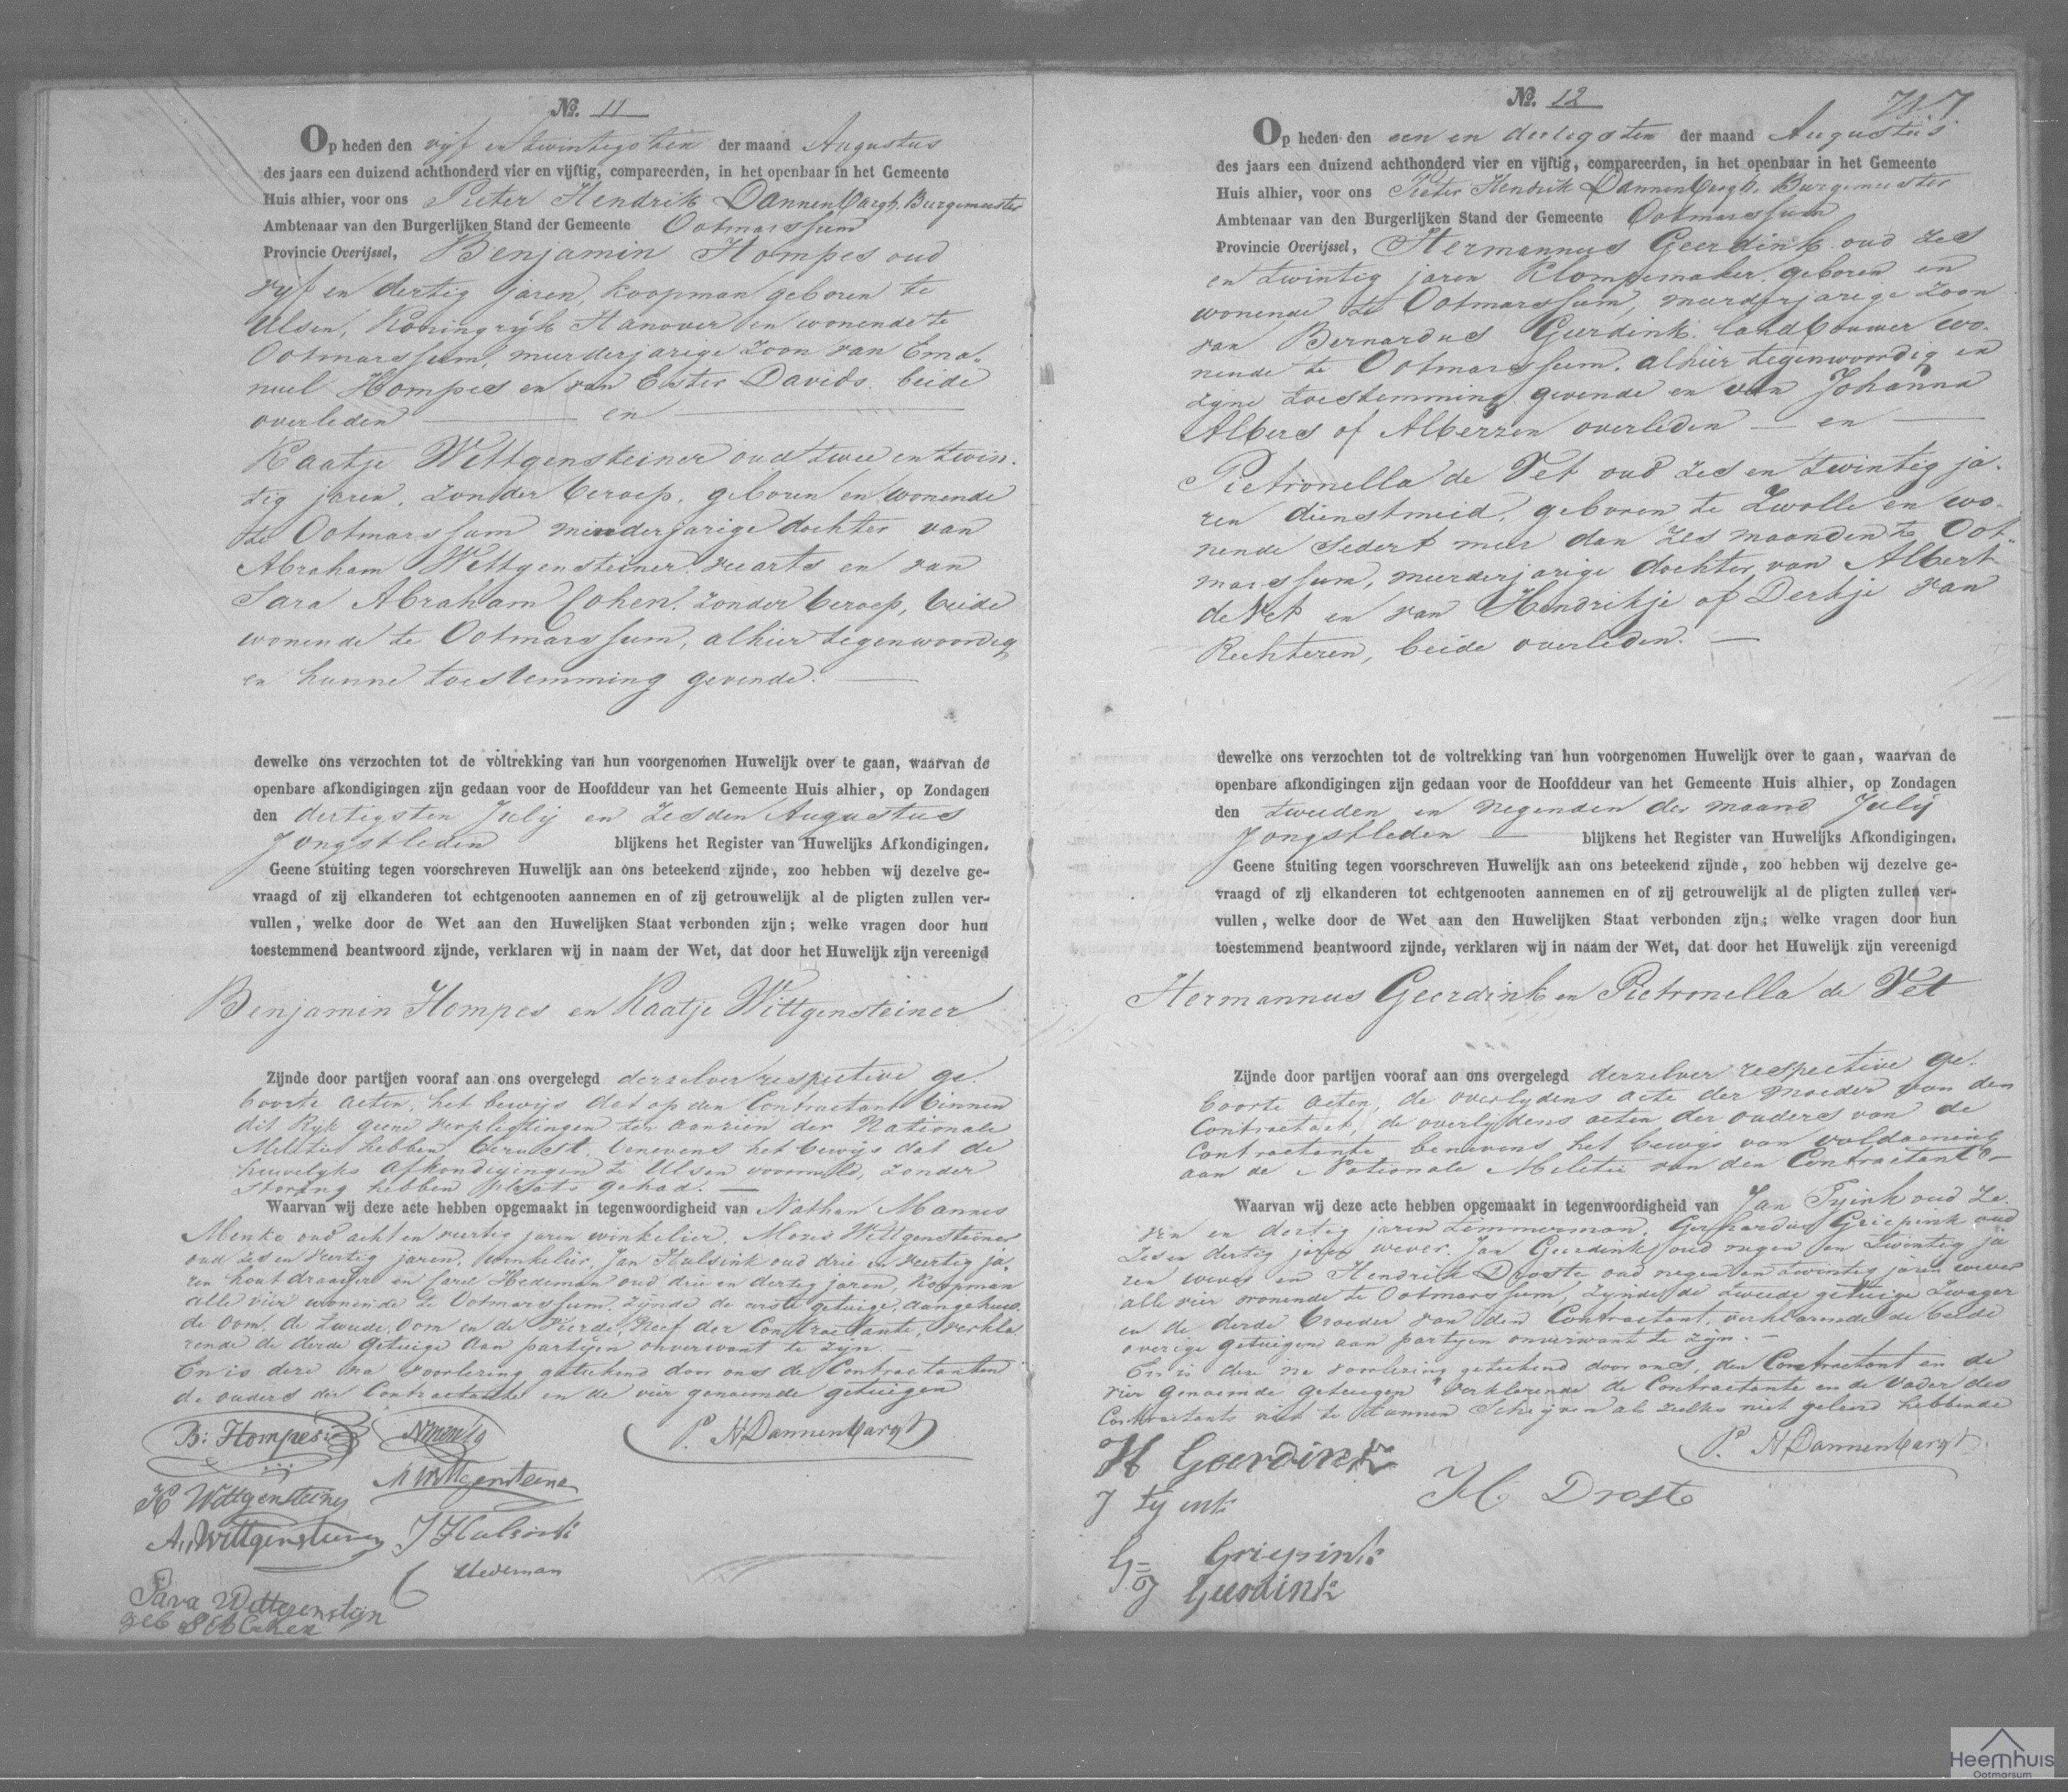 No. 11
Op heden den vijf en twintigsten der maand Augustus
des jaars een duizend achthonderd vier en vijftig, compareerden, in het openbaar in het Gemeente
Huis alhier, voor ons Pieter Hendrik Dannenbargh, Burgemeester
Ambtenaar van den Burgerlijken Stand der Gemeente Ootmarssum
Provincie Overijssel, Benjamin Hompes oud
vijf en dertig jaren, koopman geboren te
Ulsen, Koningrijk Hanover en wonende te
Ootmarssum, meerderjarige zoon van Ema-
nuel Hompes en van Ester Davids, beide
overleden en
Kaatje Wittgensteiner oud twee en twin-
tig jaren, zonder beroep, geboren en wonende
te Ootmarssum minderjarige dochter van
Abraham Wittgensteiner, veearts en van
Sara Abraham Cohen, zonder beroep, beide
wonende te Ootmarssum, alhier tegenwoordig
en hunne toestemming gevende.
dewelke ons verzochten tot de voltrekking van hun voorgenomen Huwelijk over te gaan, waarvan de
openbare afkondigingen zijn gedaan voor de Hoofddeur van het Gemeente Huis alhier, op Zondagen
den dertigsten Julij en zesden Augustus
Jongstleden blijkens het Register van Huwelijks Afkondigingen.
Geene stuiting tegen voorschreven Huwelijk aan ons beteekend zijnde, zoo hebben wij dezelve ge-
vraagd of zij elkanderen tot echtgenooten aannemen en of zij getrouwelijk al de pligten zullen ver-
vullen, welke door de Wet aan den Huwelijken Staat verbonden zijn; welke vragen door hun
toestemmend beantwoord zijnde, verklaren wij in naam der Wet, dat door het Huwelijk zijn vereenigd
Benjamin Hompes en Kaatje Wittgensteiner
Zijnde door partijen vooraf aan ons overgelegd derzelver respective ge-
boorte acten, het bewijs dat op den Contractant binnen
dit Rijk geene verpligtingen ten aanzien der Nationale
Militie hebben berust, benevens het bewijs dat de
huwelijks afkondigingen te Ulsen voormeld, zonder
storing hebben plaats gehad.
Waarvan wij deze acte hebben opgemaakt in tegenwoordigheid van Nathan Mannes
Menko oud acht en veertig jaren winkelier, Mozes Wittgensteiner
oud zes en veertig jaren, winkelier, Jan Hulsink oud drie en veertig ja-
ren houtdraaijer en Hedeman oud drie en dertig jaren, koopman
alle vier wonende te Ootmarssum, zijnde de eerste getuige, aangehuw-
de Oom, de tweede, Oom en de vierde, Neef der Contractante, verkla-
rende de derde getuige aan partijen onverwant te zijn.
En is deze na voorlezing geteekend door ons de Contractanten
de ouders der Contractante en de vier genoemde getuigen
B: Hompes
P. H Dannenbargh
K Wittgensteiner
M Wittgensteiner
A. Wittgensteiner
J Hulsink
Hedeman
Sara Wittgenstijn
geb S A Cohen
No. 12
Op heden den een en dertigsten der maand Augustus
des jaars een duizend achthonderd vier en vijftig, compareerden, in het openbaar in het Gemeente
Huis alhier, voor ons Pieter Hendrik Dannenbargh, Burgemeester
Ambtenaar van den Burgerlijken Stand der Gemeente Ootmarssum
Provincie Overijssel, Hermannus Geerdink oud zes
en twintig jaren Klompemaker, geboren en
wonende te Ootmarssum, meerderjarige zoon
van Bernardus Geerdink, landbouwer wo-
nende te Ootmarssum, alhier tegenwoordig en
zijne toestemming gevende en van Johanna
Albers of Alberzen overleden en
Pietronella de Vet oud zes en twintig ja-
ren dienstmeid, geboren te Zwolle en wo-
nende sedert meer dan zes maanden te Oot-
marssum, meerderjarige dochter van Albert
de Vet en van Hendrikje of Derkje van
Rechteren, beide overleden.
dewelke ons verzochten tot de voltrekking van hun voorgenomen Huwelijk over te gaan, waarvan de
openbare afkondigingen zijn gedaan voor de Hoofddeur van het Gemeente Huis alhier, op Zondagen
den tweeden en negenden der maand Julij
Jongstleden blijkens het Register van Huwelijks Afkondigingen.
Geene stuiting tegen voorschreven Huwelijk aan ons beteekend zijnde, zoo hebben wij dezelve ge-
vraagd of zij elkanderen tot echtgenooten aannemen en of zij getrouwelijk al de pligten zullen ver-
vullen, welke door de Wet aan den Huwelijken Staat verbonden zijn; welke vragen door hun
toestemmend beantwoord zijnde, verklaren wij in naam der Wet, dat door het Huwelijk zijn vereenigd
Hermannus Geerdink en Pietronella de Vet
Zijnde door partijen vooraf aan ons overgelegd derzelver respective ge-
boorte acten, de overlijdens acte der moeder van den
Contractant, de overlijdens acten der ouders van de
Contractante benevens het bewijs van voldoening
aan de Nationale Militie van den Contractant
Waarvan wij deze acte hebben opgemaakt in tegenwoordigheid van Jan Tijink oud ze-
ven en dertig jaren timmerman, Gerhardus Griepink oud
zes en dertig jaren wever, Jan Geerdink oud negen en twintig ja
ren wever en Hendrik Droste oud negen en twintig jaren wever
alle vier wonende te Ootmarssum, zijnde de tweede getuige zwager
en de derde broeder van den Contractant, verklarende de beide
overige getuigen aan partijen onverwant te zijn.
En is deze na voorlezing geteekend door ons, den Contractant en de
vier genoemde getuigen verklarende de Contractante en de Vader des
Contractants niet te kunnen schrijven als zulks niet geleerd hebbende
P. H Dannenbargh
H Geerdink
J Tyink
H. Droste
G= Griepink
J Geerdink
Heemhuis
Ootmarsum